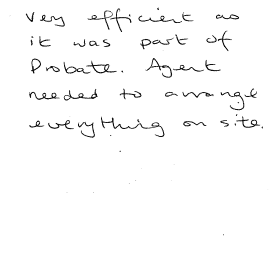 very efficient as
it was part of
Probate. Agent
needed to arrange
everything on site.